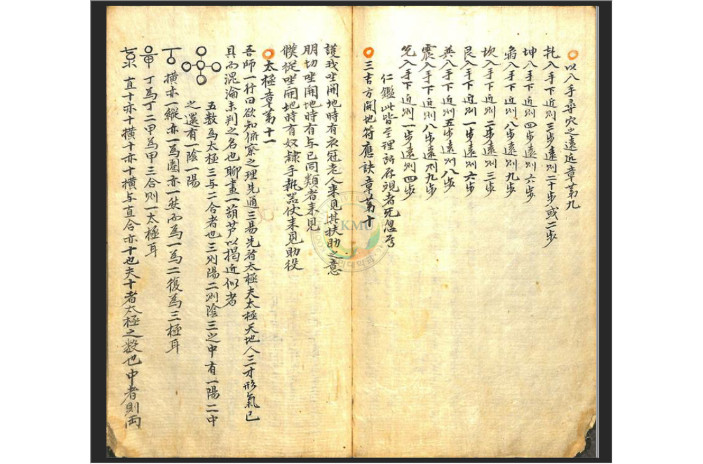 以八手尋穴之遠近章第九
乹入手下近則三步遠則二十步或二步
坤八手下近則四步遠則六步
离入手下近則八步遠則九步
坎入手下近則二步遠則三步
艮入手下近則一步遠則六步
巽入手下近則五步遠則八步
震入手下近則八步遠則九步
兌入手下近則一步遠則四步
仁鑑此皆至理所存覌者宜忽
三吉方開地符應訣章第十
護我坐開地時有衣冠老人來見其扶助之意
朋切坐開地時有与已同類者來見
候從坐開地時有奴隷手執器仗來見助役
太極章第十一
吾師一行曰欲知俯察之理先通三易先看太極夫太極天地人三才形氣已
具而混淪未判之名也聊畫一葫芦以揭近似者
五數爲太極三与二合者也三則陽二則陰三之中有一陽二中
之還有一陰一陽
丁 橫亦一縱亦一爲圈亦一然而爲一爲二後爲三極耳
甲 丁爲丁二甲爲甲三合則一太極耳
直十亦十橫十亦十橫与直合亦十也夫十者太極之數也中者則両